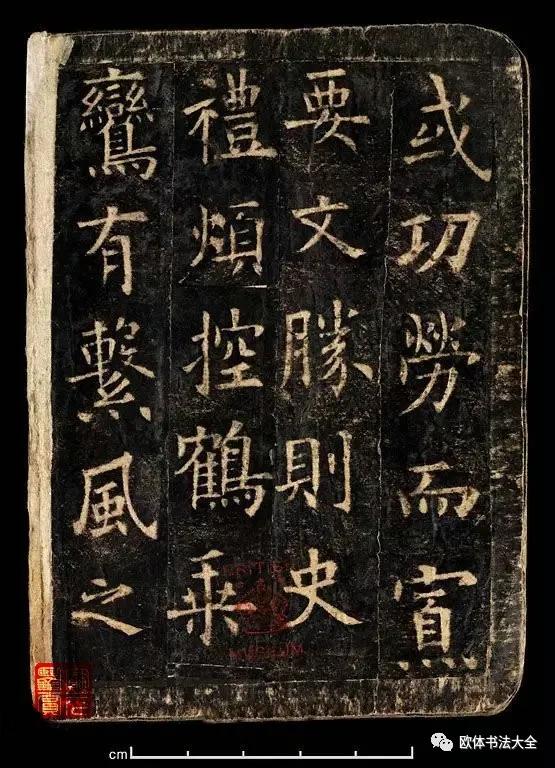 或功勞而寡
要文勝則史
禮煩控鶴乘
鸞有繫風之
BRITISH
MUSEUM
cm
欧体书法大全